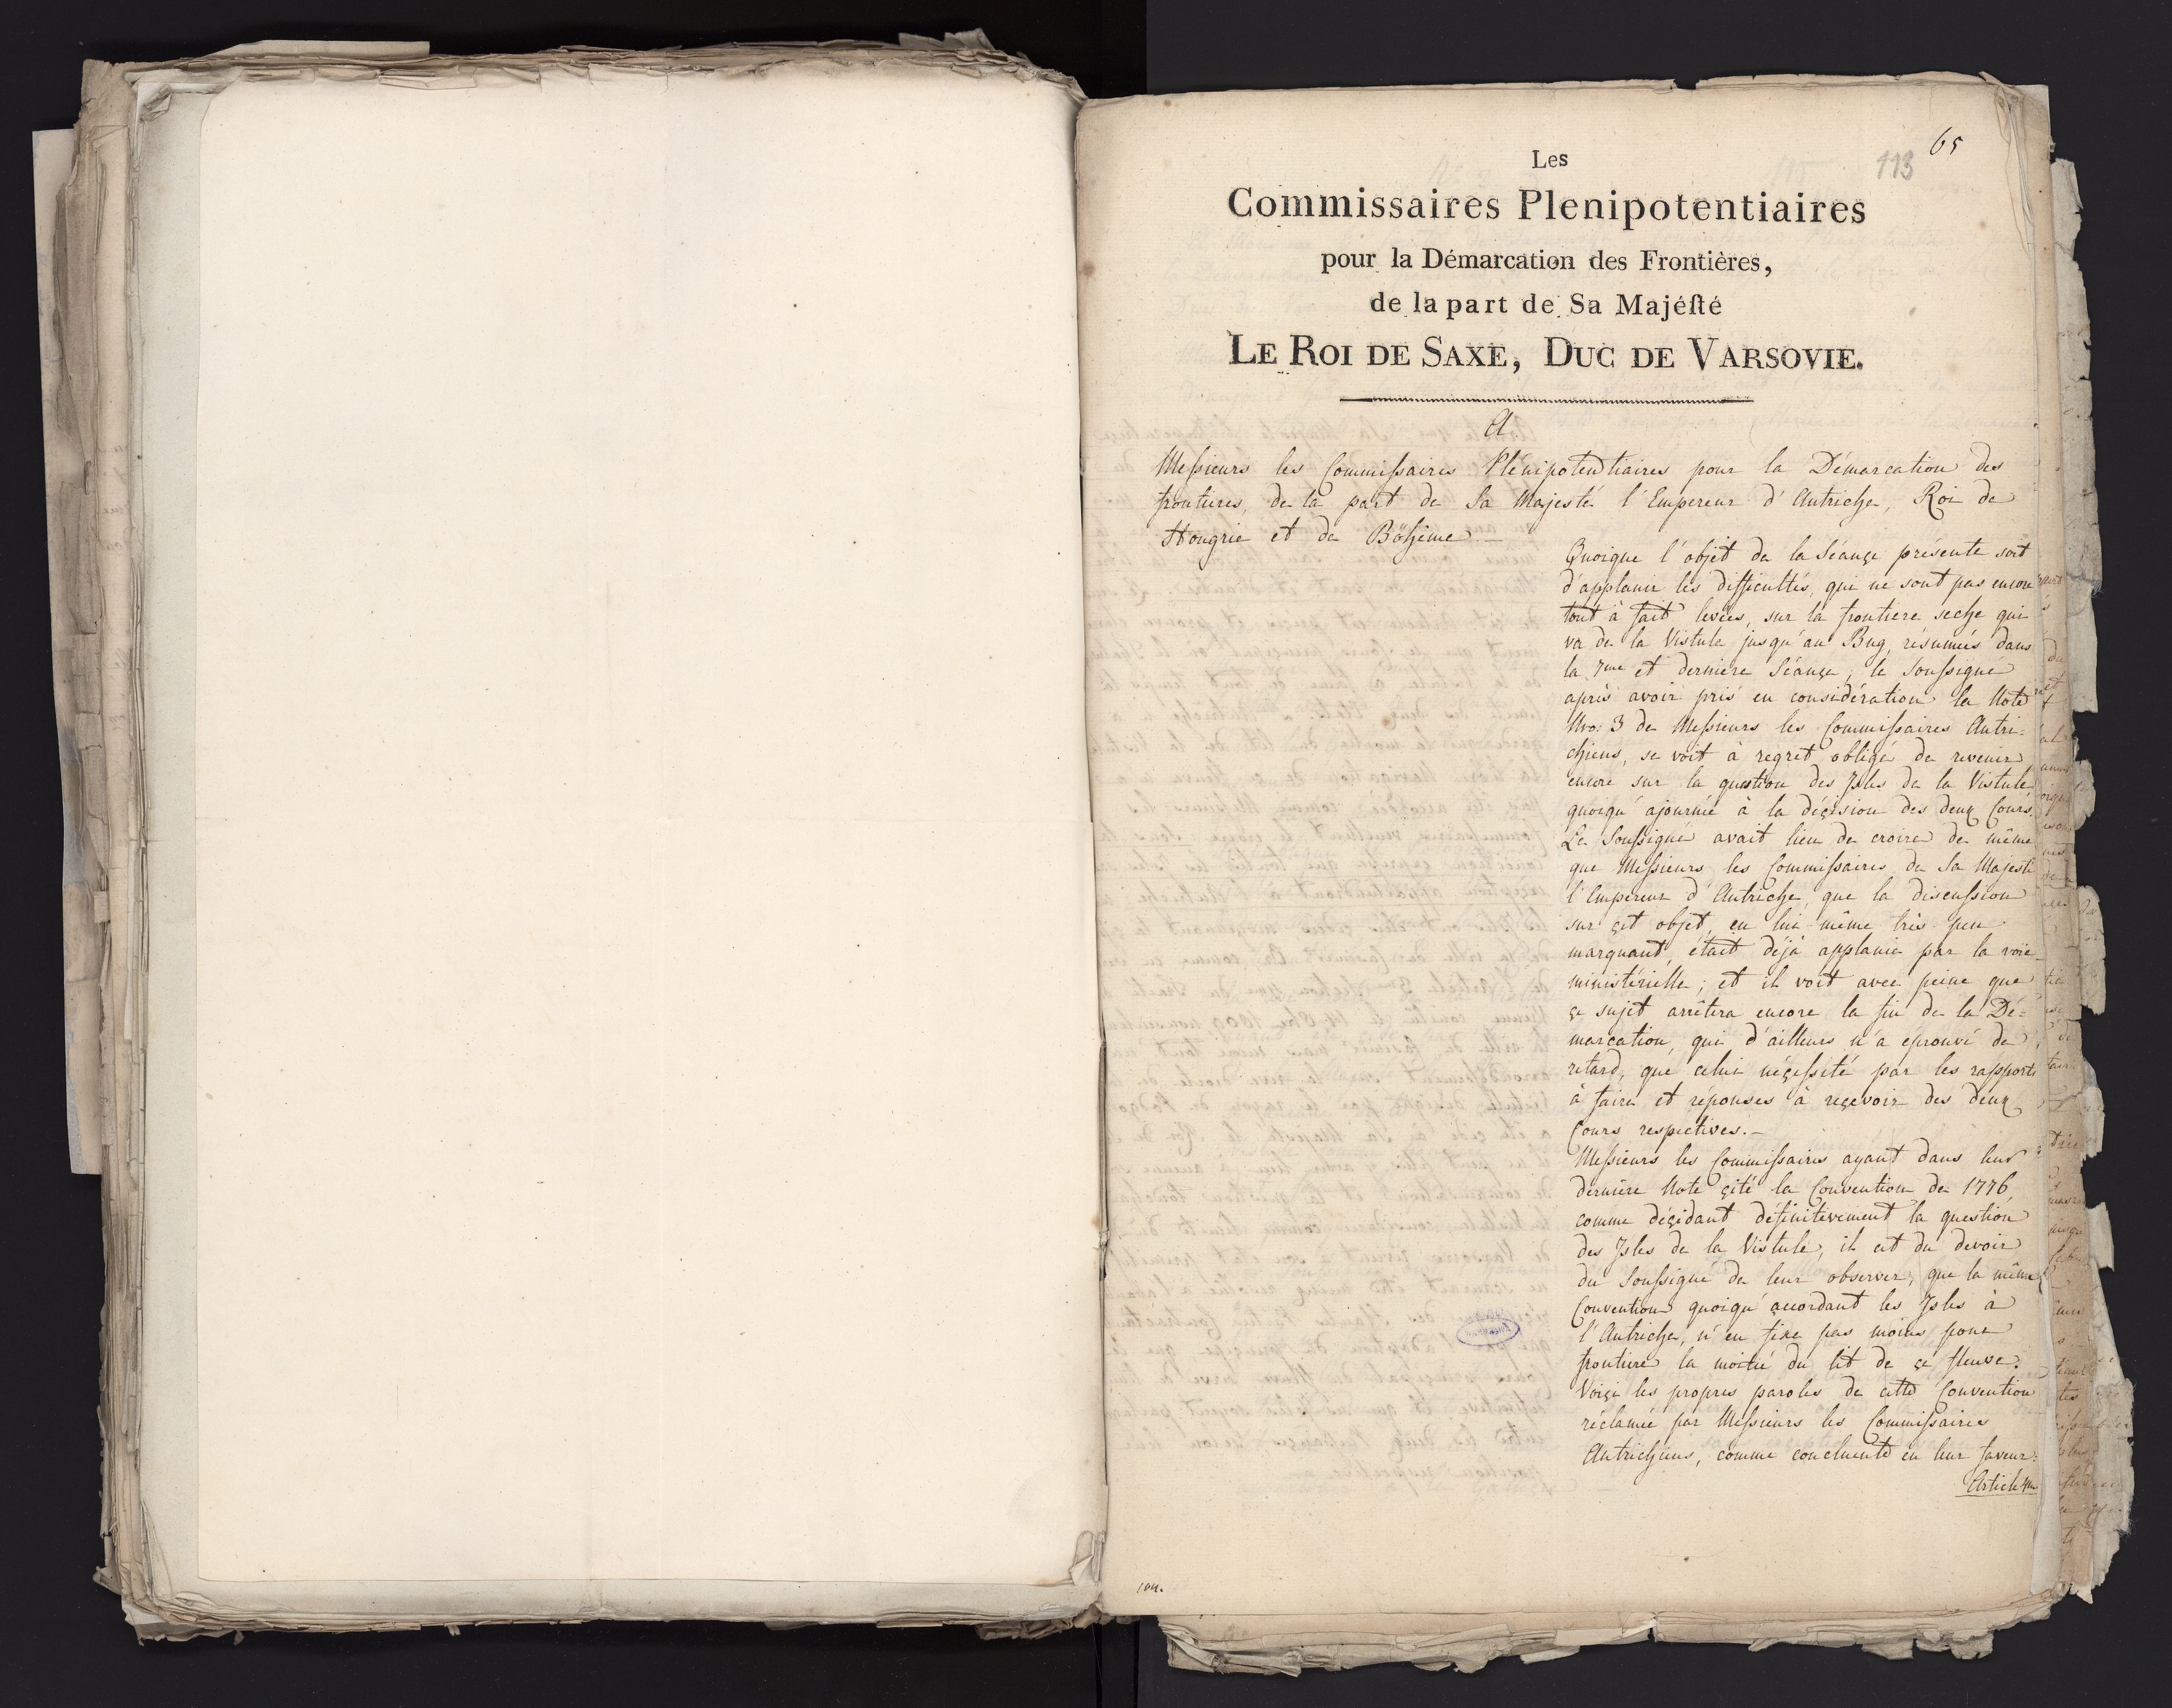 65
113
Les
Commissaires Plenipotentiaires
pour la Démarcation des Frontières,
de la part de Sa Majéſté
LE ROI DE SAXE, DUC DE VARSOVIE.
A
Meſsieurs les Commiſsaires Plénipotentiaires pour la Démarcation des
frontieres, de la part de Sa Majesté l'Empereur d'Autriche, Roi de
Hongrie et de Böhème.—
Quoique l'objet de la Séançe présente soit
d'applanir les difficultés, qui ne sont pas encore
tout à fait levées, sur la frontiere seche qui
va de la Vistule jusqu'au Bug, résumés dans
la 7me et derniere Séançe, le Souſsigné
après avoir pris en considération la Note
Nro: 3 de Meſsieurs les Commiſsaires Autri=
chiens, se voit à regret obligé de revenir
encore sur la question des Isles de la Vistule
quoiqu'ajournée à la déçision des deux Cours.
Le Souſsigné avait lieu de croire de même
que Meſsieurs les Commiſsaires de Sa Majesté
l'Empereur d'Autriche, que la discuſsion
sur çet objet, en lui-même très peu
marquant, était déjà applanie par la voie
ministérielle; et il voit avec peine que
çe sujet arrêtera encore la fin de la Dé=
marcation, qui d'ailleurs n'a éprouvé de
retard, que celui néçeſsité par les rapports
à faire et réponses à reçevoir des deux
Cours respectives.—
Meſsieurs les Commiſsaires ayant dans leur
dernière Note çité la Convention de 1776
comme déçidant définitivement la question
des Isles de la Vistule, il est du devoir
du Souſsigné de leur observer, que la même
Convention quoiqu'accordant les Isles à
l'Autriche, n'en fixe pas moins pour
frontiere la moitié du lit de çe fleuve.
Voiçi les propres paroles de cette Convention
réclamée par Meſsieurs les Commiſsaires
Autrichiens, comme concluente en leur faveur:
Article